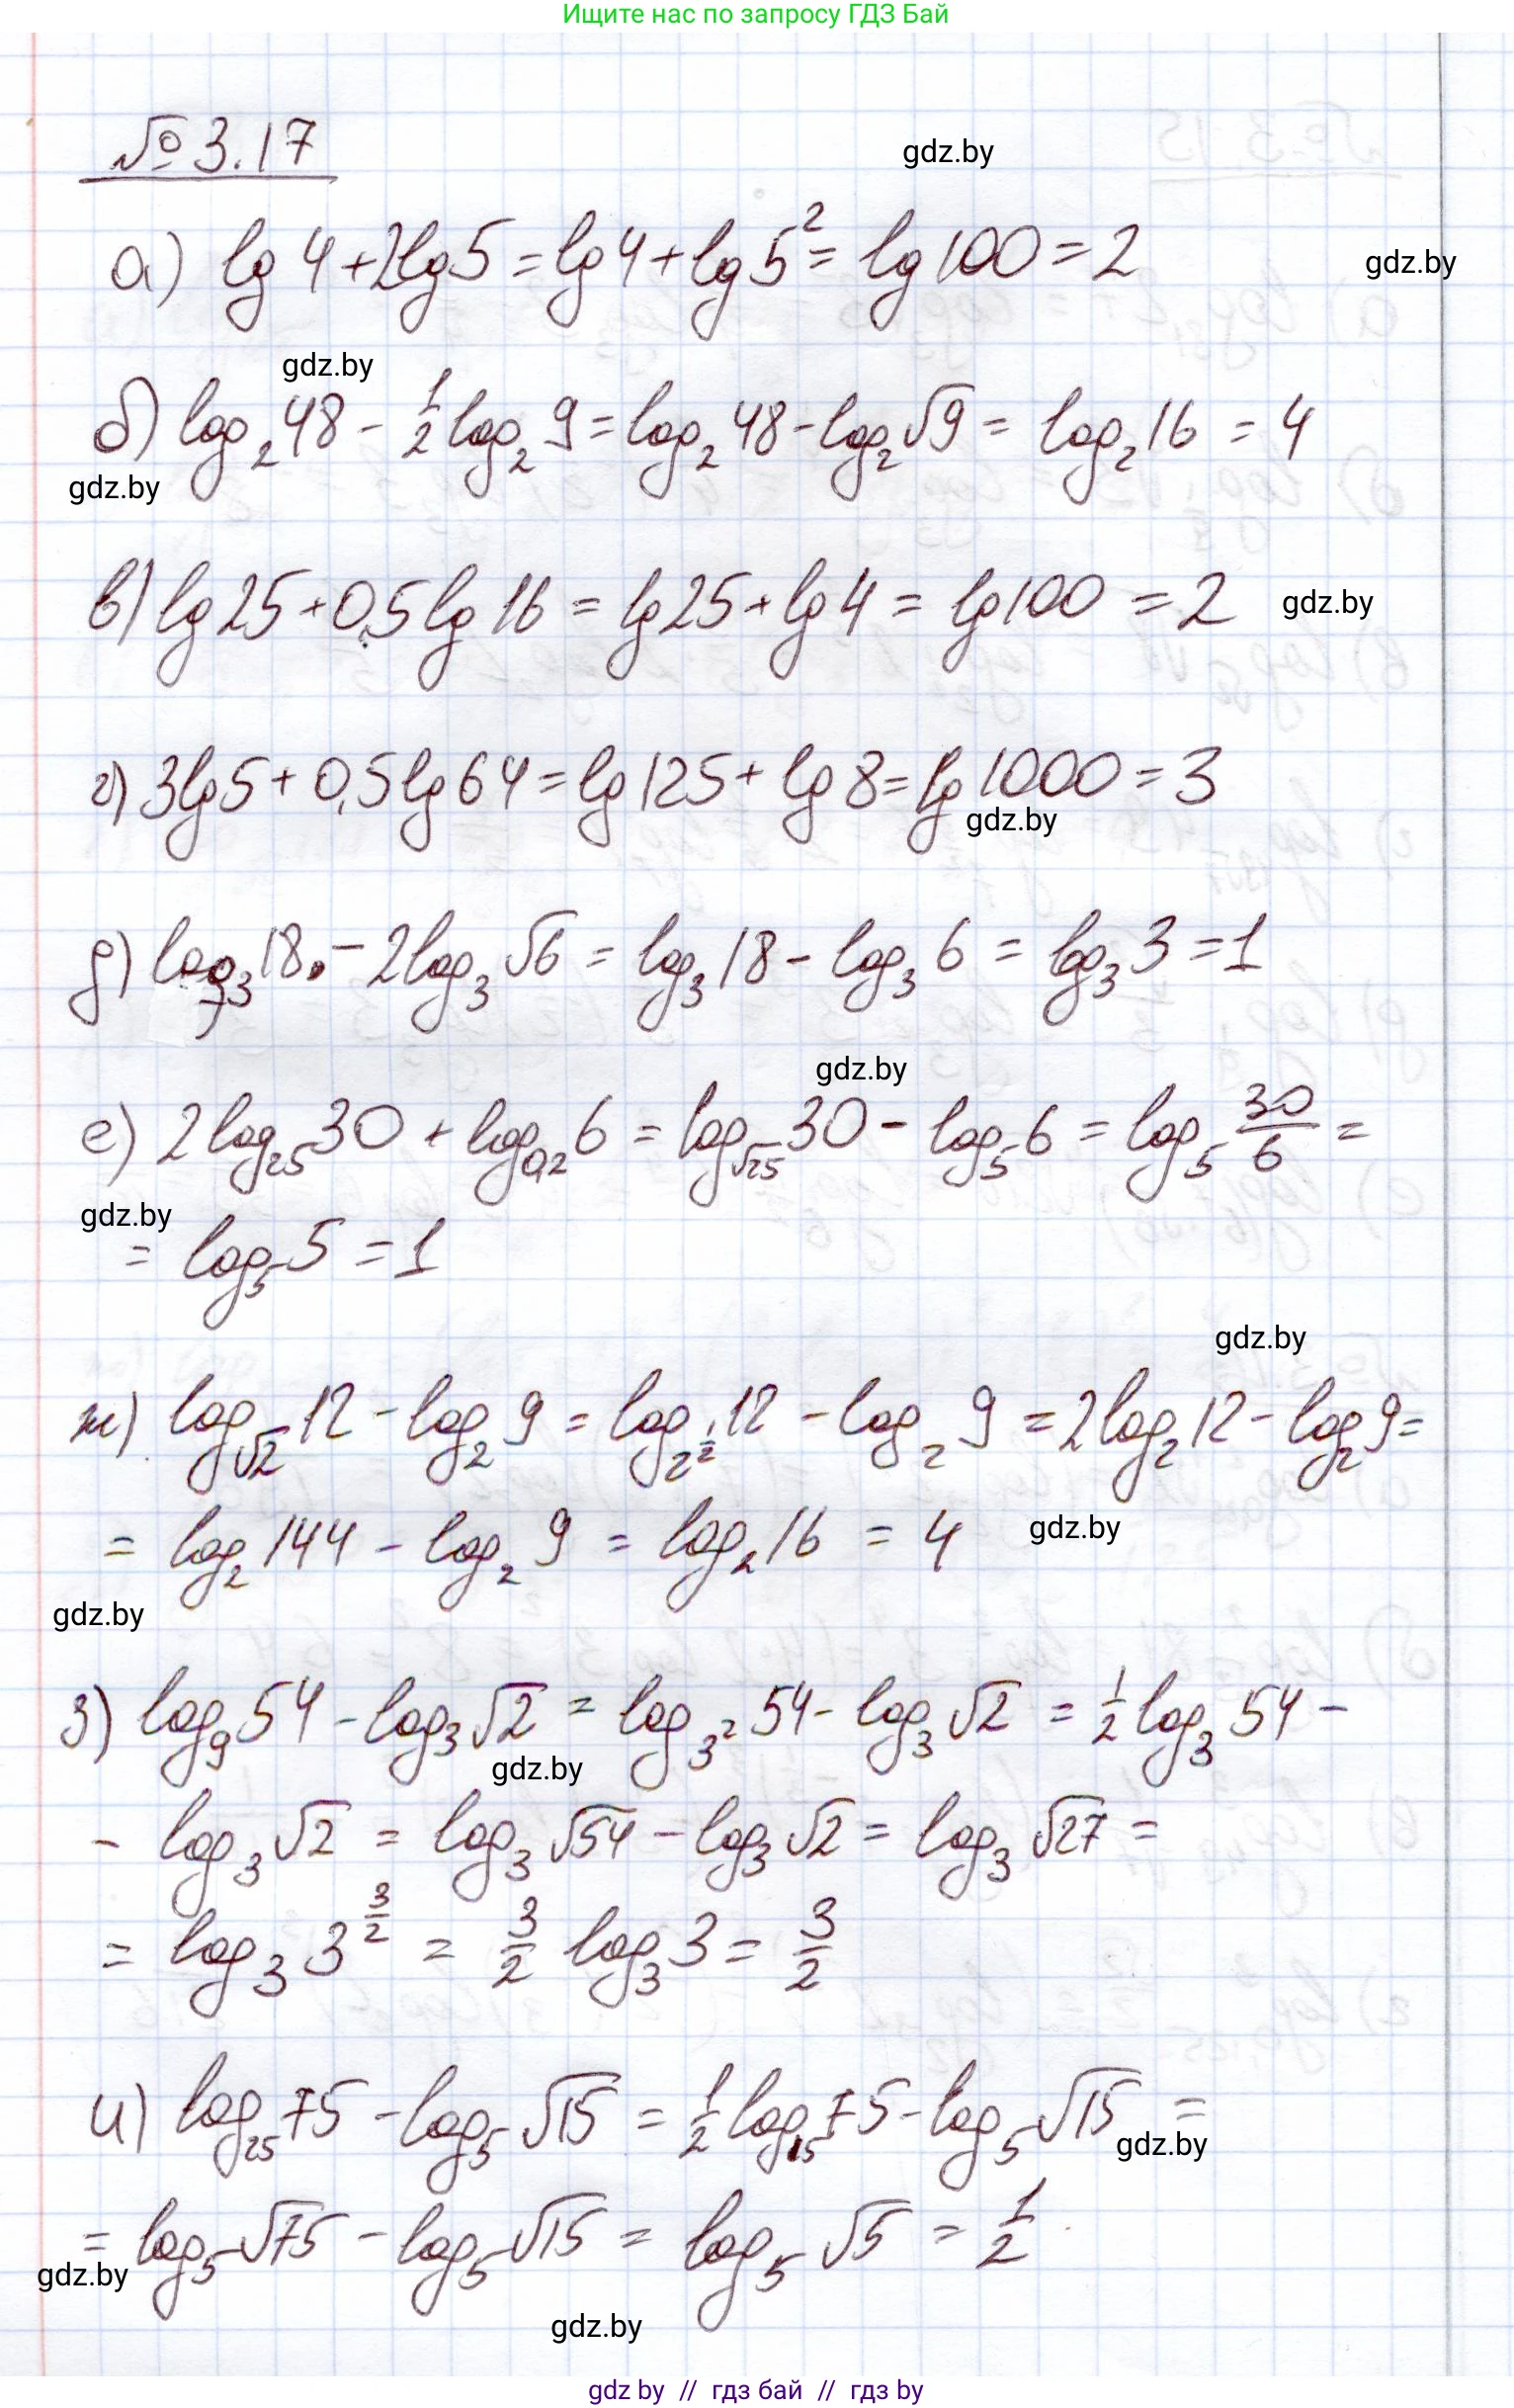 Ищите нас по запросу ГДЗ Бай
№ 3.17
gdz.by
а) lg 4 + 2lg 5 = lg 4 + lg 5² = lg 100 = 2
gdz.by
gdz.by
б) log₂ 48 - 1/2 log₂ 9 = log₂ 48 - log₂ √9 = log₂ 16 = 4
gdz.by
в) lg 25 + 0,5 lg 16 = lg 25 + lg 4 = lg 100 = 2
gdz.by
г) 3lg 5 + 0,5 lg 64 = lg 125 + lg 8 = lg 1000 = 3
gdz.by
д) log₃ 18 - 2log₃ √6 = log₃ 18 - log₃ 6 = log₃ 3 = 1
gdz.by
е) 2log₂₅ 30 + log_0,2 6 = log_√25 30 - log₅ 6 = log₅ 30/6 =
gdz.by
= log₅ 5 = 1
gdz.by
ж) log_√2 12 - log₂ 9 = log_2^(1/2) 12 - log₂ 9 = 2log₂ 12 - log₂ 9 =
= log₂ 144 - log₂ 9 = log₂ 16 = 4
gdz.by
gdz.by
з) log₉ 54 - log₃ √2 = log_3² 54 - log₃ √2 = 1/2 log₃ 54 -
gdz.by
- log₃ √2 = log₃ √54 - log₃ √2 = log₃ √27 =
= log₃ 3^(3/2) = 3/2 log₃ 3 = 3/2
и) log₂₅ 75 - log₅ √15 = 1/2 log₁₅ 75 - log₅ √15 =
gdz.by
= log₅ √75 - log₅ √15 = log₅ √5 = 1/2
gdz.by
gdz.by
gdz by // гдз бай // gdz by